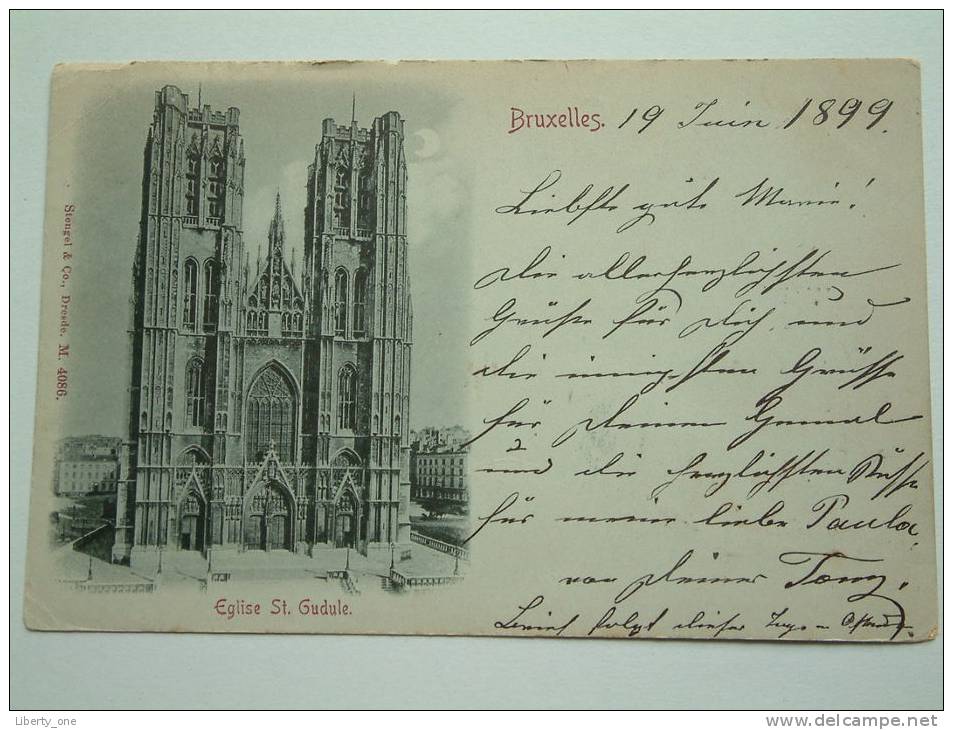 Bruxelles. 19 Juin 1899.
Liebste gute Marie!
Die allerherzlichsten
Grüße für Dich und
die innigsten Grüsse
für Deinen Gemal
und die herzlichsten Küsse
für meine liebe Paula
von Deiner Tony.
Brief folgt dieser Tage
Stengel & Co., Dresde. M. 4086.
Eglise St. Gudule.
Liberty_one
www.delcampe.net